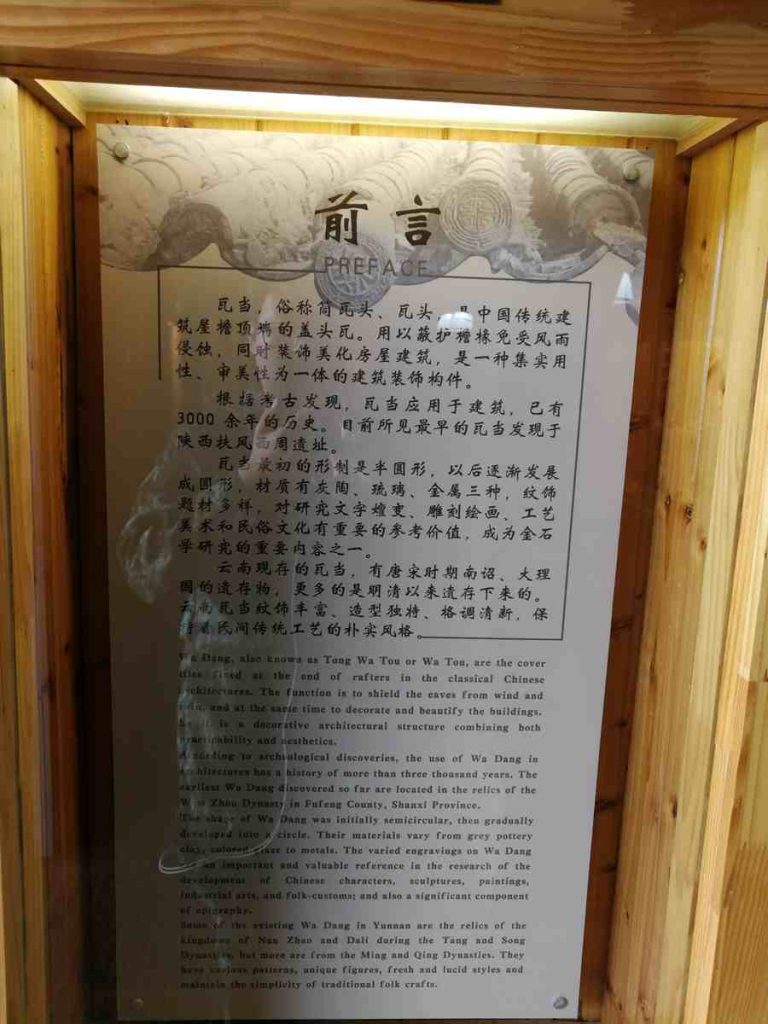 前言
PREFACE
瓦当，俗称筒瓦头、瓦头，是中国传统建
筑屋檐顶端的盖头瓦。用以蔽护檐椽免受风雨
侵蚀，同时装饰美化房屋建筑，是一种集实用
性、审美性为一体的建筑装饰构件。
根据考古发现，瓦当应用于建筑，已有
3000 余年的历史。目前所见最早的瓦当发现于
陕西扶风西周遗址。
瓦当最初的形制是半圆形，以后逐渐发展
成圆形，材质有灰陶、琉璃、金属三种，纹饰
题材多样，对研究文字嬗变、雕刻绘画、工艺
美术和民俗文化有重要的参考价值，成为金石
学研究的重要内容之一。
云南现存的瓦当，有唐宋时期南诏、大理
国的遗存物，更多的是明清以来遗存下来的。
云南瓦当纹饰丰富、造型独特、格调清新，保
持着民间传统工艺的朴实风格。
Wa Dang, also known as Tong Wa Tou or Wa Tou, are the cover
tiles fixed at the end of rafters in the classical Chinese
architectures. The function is to shield the eaves from wind and
rain, and at the same time to decorate and beautify the buildings.
So it is a decorative architectural structure combining both
practicability and aesthetics.
According to archeological discoveries, the use of Wa Dang in
architectures has a history of more than three thousand years. The
earliest Wa Dang discovered so far are located in the relics of the
West Zhou Dynasty in Fufeng County, Shanxi Province.
The shape of Wa Dang was initially semicircular, then gradually
developed into a circle. Their materials vary from grey pottery
clay, colored glaze to metals. The varied engravings on Wa Dang
an important and valuable reference in the research of the
development of Chinese characters, sculptures, paintings,
industrial arts, and folk-customs; and also a significant component
of epigraphy.
Some of the existing Wa Dang in Yunnan are the relics of the
kingdoms of Nan Zhao and Dali during the Tang and Song
Dynasties, but more are from the Ming and Qing Dynasties. They
have various patterns, unique figures, fresh and lucid styles and
maintain the simplicity of traditional folk crafts.